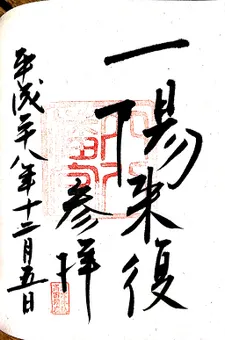 一陽来復
参拝
平成廿八年十二月五日